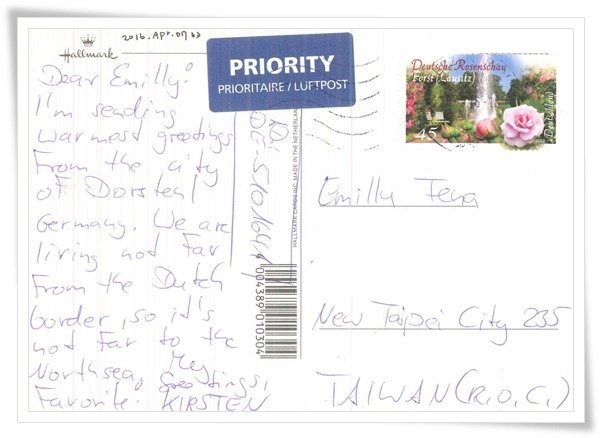 2016.APR.07
Hallmark
PRIORITY
PRIORITAIRE / LUFTPOST
Deutsche Rosenschau
Forst (Lausitz)
45
Deutschland
Dear Emilly!
I'm sending
warmest greetings
From the city
of Dorsten/
Germany. We are
living not far
From the Dutch
border, so it's
not far to the
Northsea. My
Favorite. Greetings,
KIRSTEN
ID:
DE-5101641
HALLMARK CARDS INC. MADE IN THE NETHERLANDS
0043890 10304
Emilly
New Taipei City 235
TAIWAN (R.O.C.)